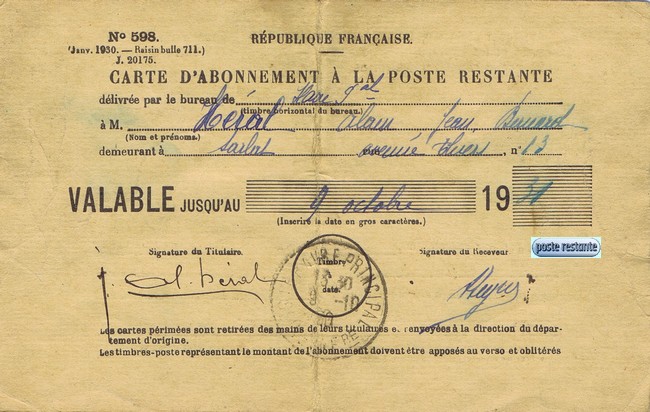 No 598.
(Janv. 1930. — Raisin bulle 711.)
J. 20175.
RÉPUBLIQUE FRANÇAISE.
CARTE D'ABONNEMENT À LA POSTE RESTANTE
délivrée par le bureau de Havre Pal
(timbre horizontal du bureau.)
à M. Héral Alain Jean
(Nom et prénoms.)
demeurant à avenue Thiers, n° 13
VALABLE JUSQU'AU 9 octobre 1931
(Inscrire la date en gros caractères.)
poste restante
Signature du Titulaire.
Timbre
date.
Signature du Receveur
HAVRE PRINCIPAL
Les cartes périmées sont retirées des mains de leurs titulaires e. renvoyées à la direction du dépar-
tement d'origine.
Les timbres-poste représentant le montant de l'abonnement doivent être apposés au verso et oblitérés